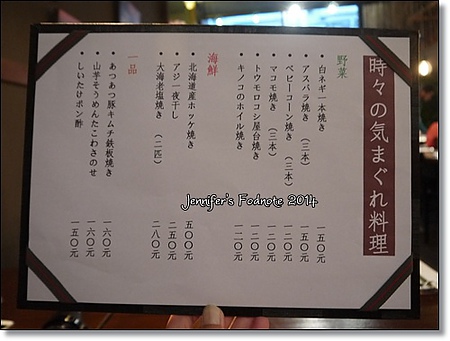 時々の気まぐれ料理
野菜
・白ネギ一本焼き 一五〇元
・アスパラ焼き（三本） 一五〇元
・ベビーコーン焼き（三本） 一二〇元
・マコモ焼き（三本） 一一〇元
・トウモロコシ屋台焼き 一二〇元
・キノコのホイル焼き 一二〇元
海鮮
・北海道産ホッケ焼き 五〇〇元
・アジ一夜干し 二五〇元
・大海老塩焼き（二匹） 二八〇元
一品
・あつあつ豚キムチ鉄板焼き 一六〇元
・山芋そうめんたこわさのせ 一六〇元
・しいたけポン酢 一五〇元
Jennifer's Fodnote 2014